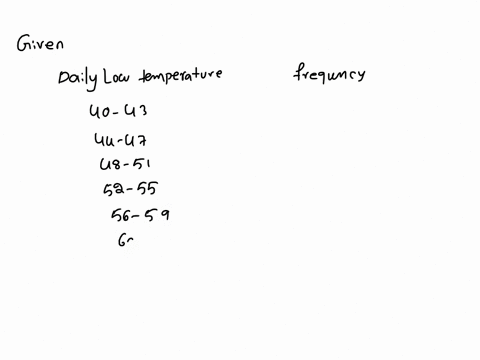 Given
Daily Low temperature frequncy
40-43
44-47
48-51
52-55
56-59
6